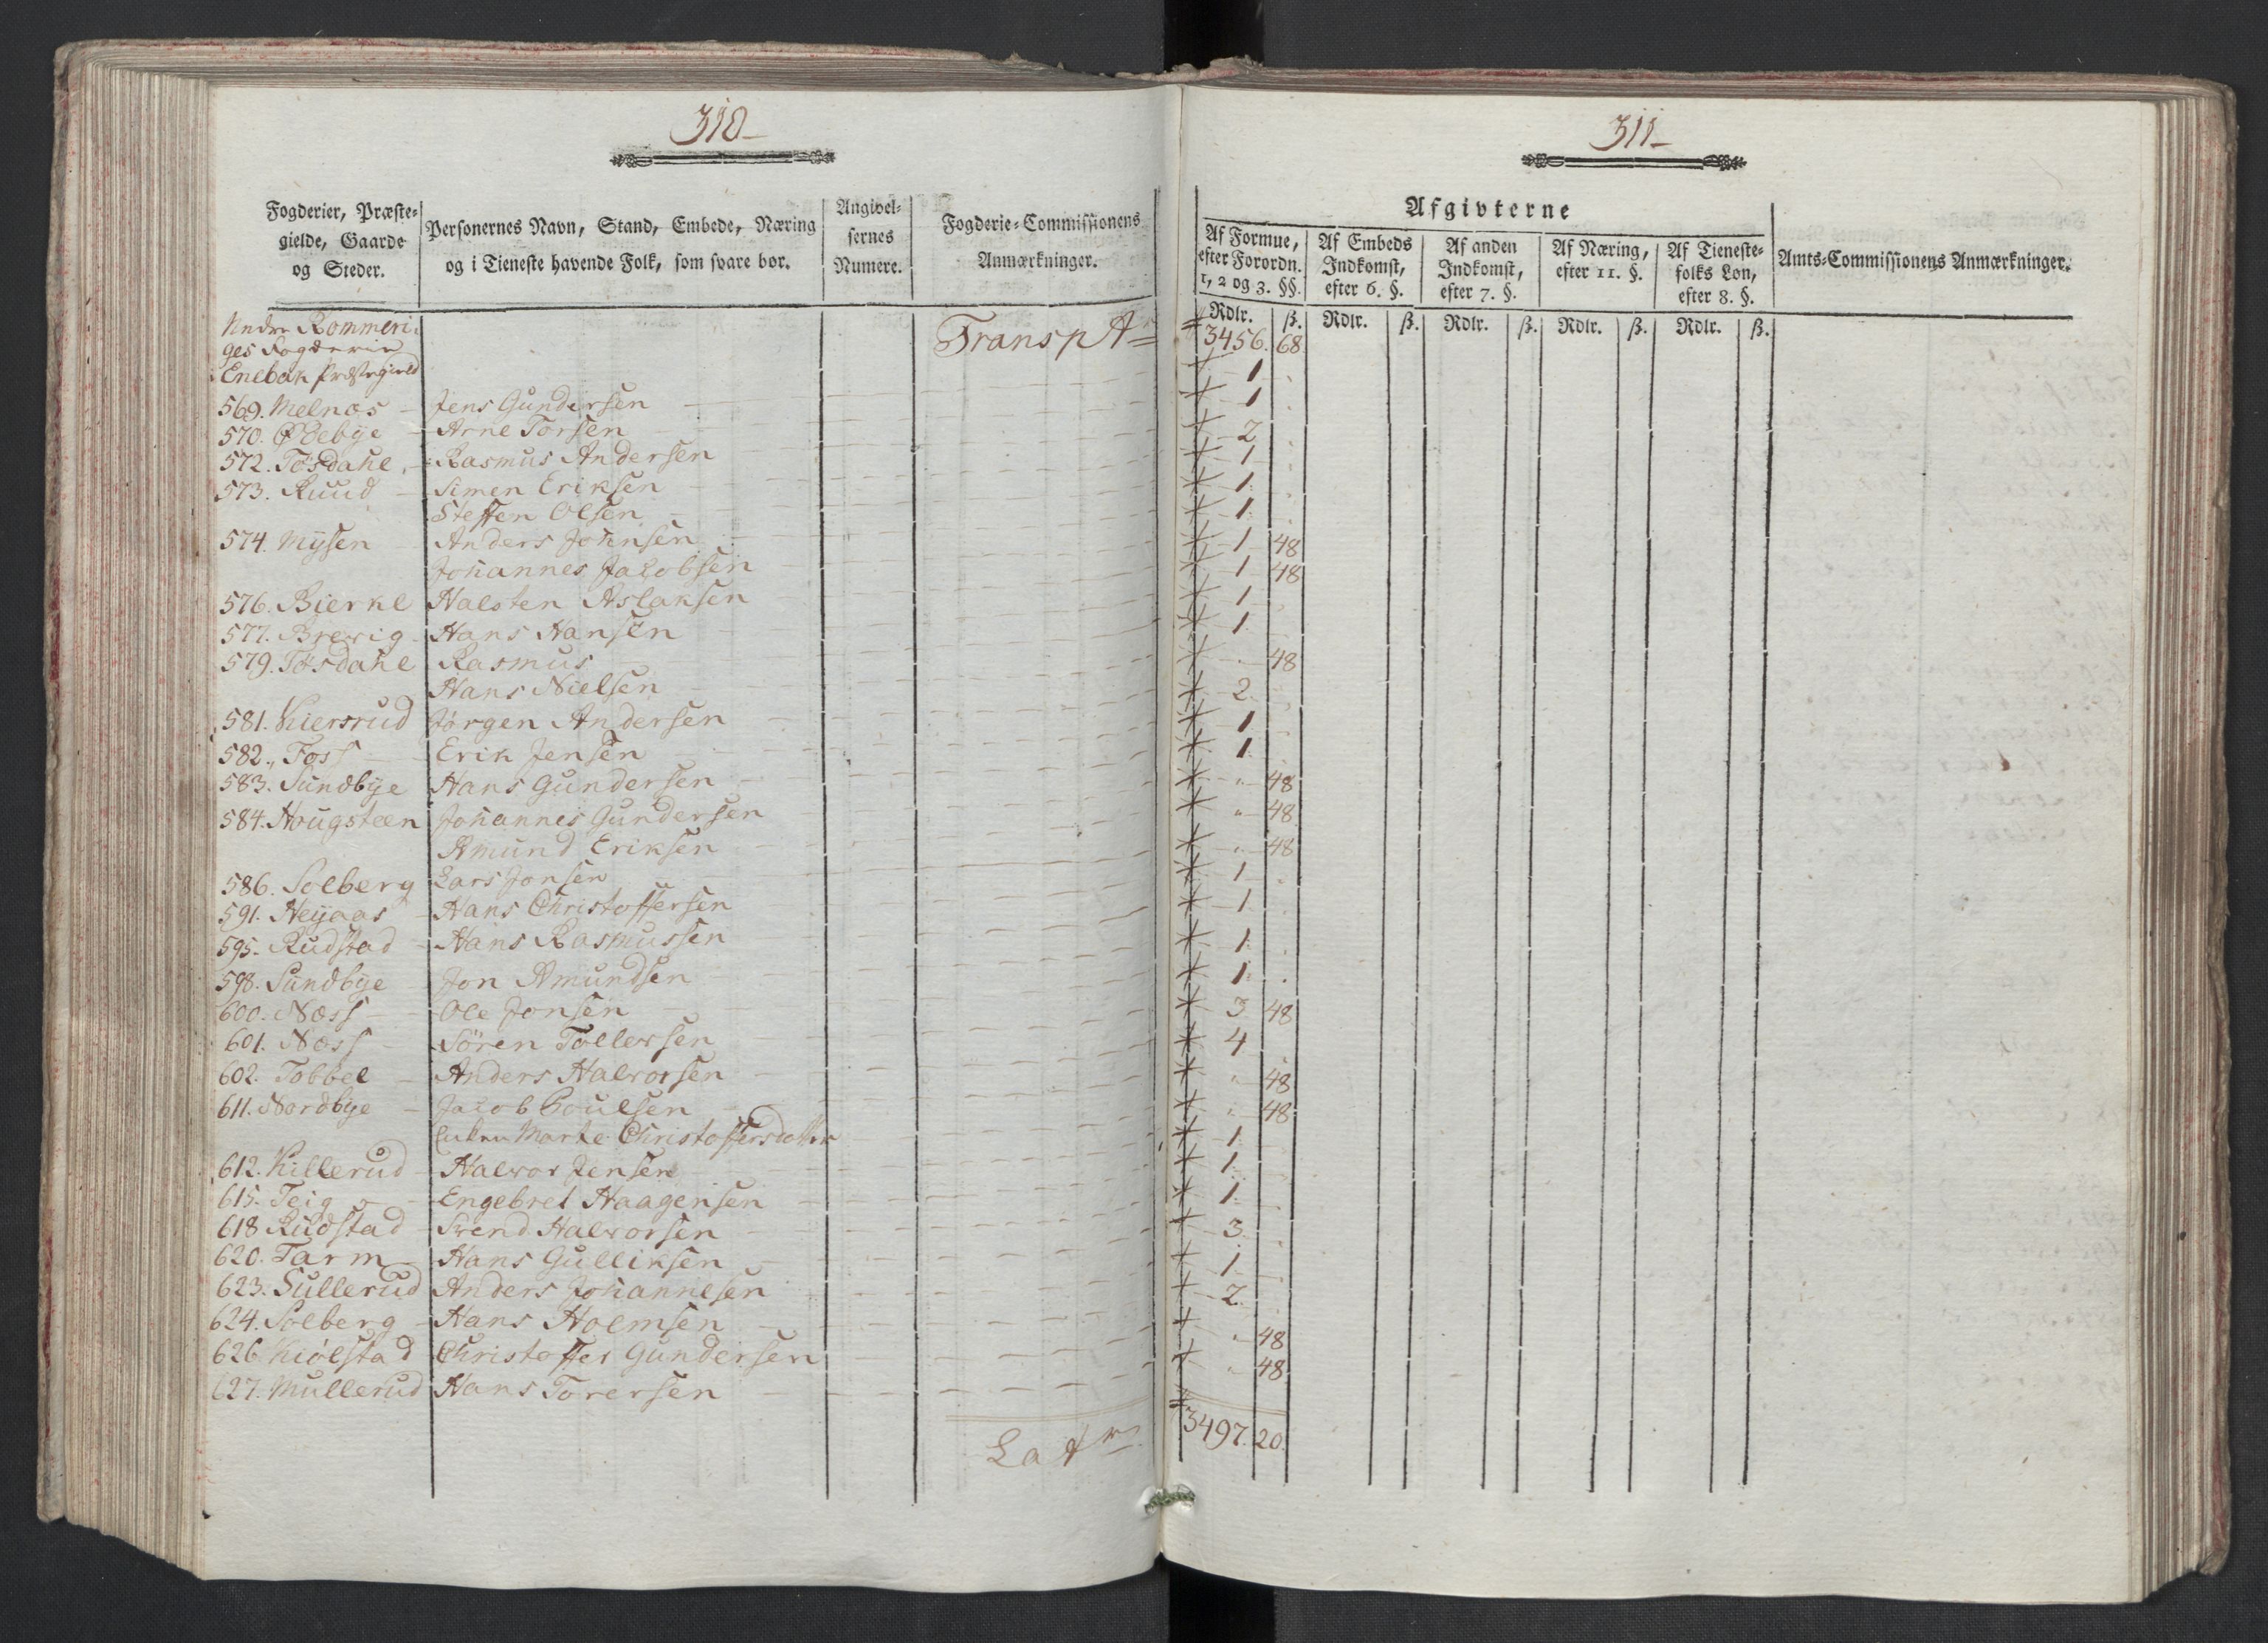 310
Fogderier, Præste-
gielde, Gaarde
og Steder.
Personernes Navn, Stand, Embede, Næring
og i Tieneste havende Folk, som svare bør.
Angivel-
sernes
Numere.
Fogderie-Commissionens
Anmærkninger.
Nedre Rommeri-
ges Fogderie
Enebak Præstegield
Transpt
569. Melnæs - Jens Gundersen
570. Ødebye - Arne Torsen
572. Tøsdahl - Rasmus Andersen
573. Ruud - Simen Eriksen
Steffen Olsen
574. Mysen - Anders Johnsen
Johannes Jacobsen
576. Bierke Halsten Aslaksen
577. Brevig - Hans Hansen
579. Tøsdahl Rasmus
Hans Nielsen
581. Kiersrud Jørgen Andersen
582. Foss Erik Jensen
583. Sundbye Hans Gundersen
584. Hougsteen Johannes Gundersen
Amund Eriksen
586. Solberg Lars Jonsen
591. Heyaas - Hans Christoffersen
595. Rudstad - Hans Rasmussen
598. Sundbye Jon Amundsen
600. Næss Ole Jonsen
601. Næss Sören Tollersen
602. Tobbel Anders Halvorsen
611. Nordbye - Jacob Poulsen
Enken Marte Christoffersdatter
612. Killerud Halvor Jensen
615. Teig - Engebret Haagensen
618 Rudstad - Svend Halvorsen
620. Tarm Hans Gulliksen
623. Sullerud Anders Johannesen
624. Solberg - Hans Holmsen
626 Kiölstad Christoffer Gundersen
627. Mullerud Hans Torersen
Lat
311
Afgivterne
Af Formue,
efter Forordn.
1, 2 og 3. §§.
Af Embeds
Indkomst,
efter 6. §.
Af anden
Indkomst,
efter 7. §.
Af Næring,
efter 11. §.
Af Tieneste-
folks Løn,
efter 8. §.
Amts-Commissionens Anmærkninger.
Rdlr. ß. Rdlr. ß. Rdlr. ß. Rdlr. ß. Rdlr. ß.
3456. 68
1
1
2
1
1
1
1 48
1 48
1
1
" 48
2
1
1
" 48
" 48
" 48
1
1
1
1
3 48
4
" 48
" 48
1
1
1
3
1
2
" 48
" 48
3497. 20